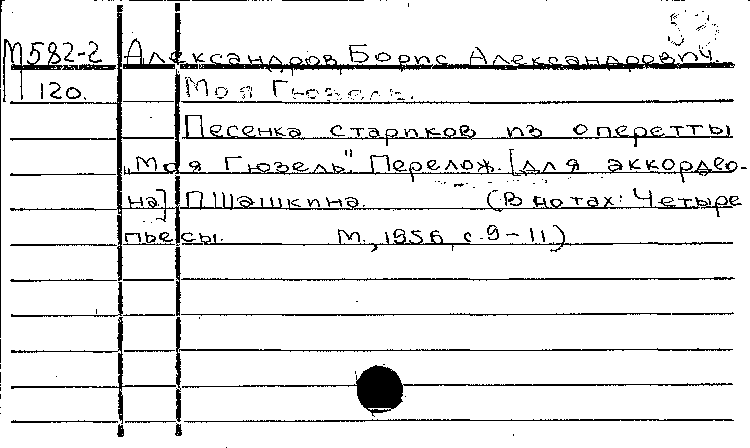 М582-2 Александров, Борис Александрович.
120. Моя Гюзель.
Песенка стариков из оперетты
„Моя Гюзель". Перелож. [для аккордео-
на] П. Шашкина. (В нотах: Четыре
пьесы. М., 1956, с. 9-11)